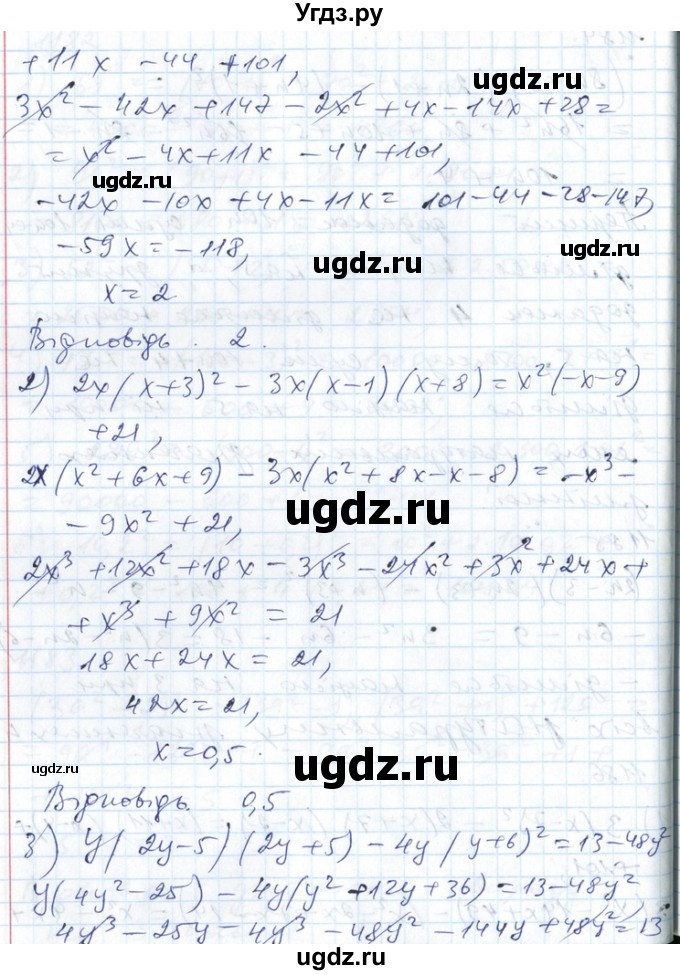 Угдз.ру
+11x -44 +101,
3x² - 42x + 147 - 2x² + 4x - 14x + 28 =
= x² - 4x + 11x - 44 + 101,
-42x - 10x + 4x - 11x = 101 - 44 - 28 - 147,
ugdz.ru
ugdz.ru
-59x = -118,
ugdz.ru
x = 2
Відповідь. 2.
2) 2x(x+3)² - 3x(x-1)(x+8) = x²(-x-9)
+21,
2x(x²+6x+9) - 3x(x²+8x-x-8) = -x³ -
ugdz.ru
- 9x² + 21,
2x³ + 12x² + 18x - 3x³ - 24x² + 3x² + 24x +
+ x³ + 9x² = 21
18x + 24x = 21,
ugdz.ru
42x = 21,
x = 0,5.
ugdz.ru
ugdz.ru
Відповідь. 0,5.
3) y(2y-5)(2y+5) - 4y(y+6)² = 13-48y²
y(4y²-25) - 4y(y²+12y+36) = 13-48y²
4y³ - 25y - 4y³ - 48y² - 144y + 48y² = 13
ugdz.ru